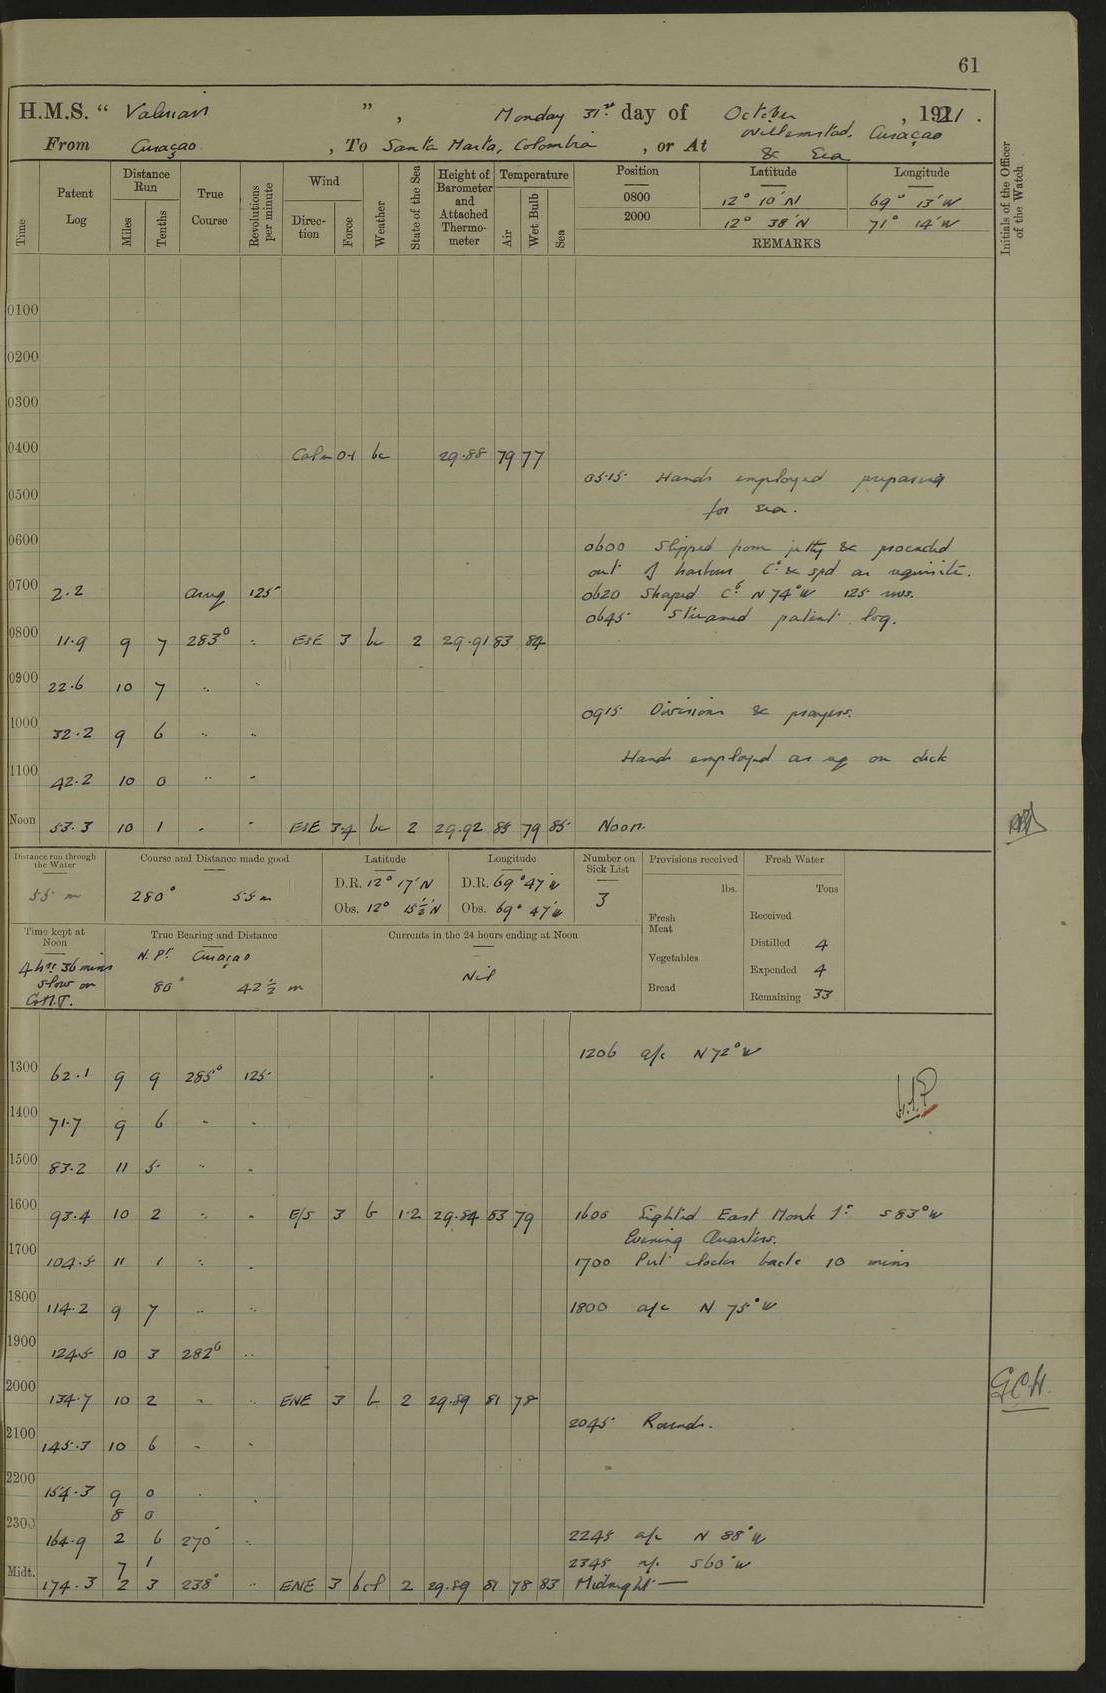 61
H.M.S. " Valerian " , Monday 31st day of October , 1921 .
From Curaçao , To Santa Marta, Colombia , or At Willemstad, Curaçao & Sea
Time Patent Log Distance Run Miles Tenths True Course Revolutions per minute Wind Direction Force Weather State of the Sea Height of Barometer and Attached Thermometer Temperature Air Wet Bulb Sea Position Latitude Longitude Initials of the Officer of the Watch
0800 12° 10' N 69° 13' W
2000 12° 38' N 71° 14' W
REMARKS
0100
0200
0300
0400 Calm 0-1 bc 29.88 79 77
0515 Hands employed preparing
0500
for sea.
0600 0600 Slipped from jetty & proceeded
out of harbour Co & spd as requisite.
0700 2.2 as req 125 0620 Shaped Co N 74° W 125 revs.
0645 Streamed patent log.
0800 11.9 9 7 283° " ESE 3 bc 2 29.91 83 84
0900 22.6 10 7 " "
0915 Divisions & prayers.
1000 32.2 9 6 " "
Hands employed as req on deck
1100 42.2 10 0 " "
Noon 53.3 10 1 " " ESE 3-4 bc 2 29.92 85 79 85 Noon.
Distance run through the Water Course and Distance made good Latitude Longitude Number on Sick List Provisions received Fresh Water
55 m 280° 55 m D.R. 12° 17' N D.R. 69° 47' W 3 lbs. Tons
Obs. 12° 15½' N Obs. 69° 47' W Fresh Meat Received
Time kept at Noon True Bearing and Distance Currents in the 24 hours ending at Noon
4 hrs 36 mins slow on G.M.T. N. Pt Curaçao 80° 42½ m Nil
Vegetables Distilled 4
Bread Expended 4
Remaining 33
1206 a/c N 72° W
1300 62.1 9 9 285° 125
1400 71.7 9 6 " "
1500 83.2 11 5 " "
1600 93.4 10 2 " " E/S 3 b 1.2 29.84 83 79 1600 Sighted East Monk Is S 83° W
Evening Quarters.
1700 104.5 11 1 " " 1700 Put clocks back 10 mins
1800 114.2 9 7 " " 1800 a/c N 75° W
1900 124.5 10 3 282° "
2000 134.7 10 2 " " ENE 3 b 2 29.89 81 78 G.C.H.
2045 Rounds.
2100 145.3 10 6 " "
2200 154.3 9 0 " "
8 0
2300 164.9 2 6 270° " 2245 a/c N 88° W
7 1 2345 a/c S 60° W
Midt. 174.3 2 3 238° " ENE 3 bcl 2 29.89 81 78 83 Midnight —